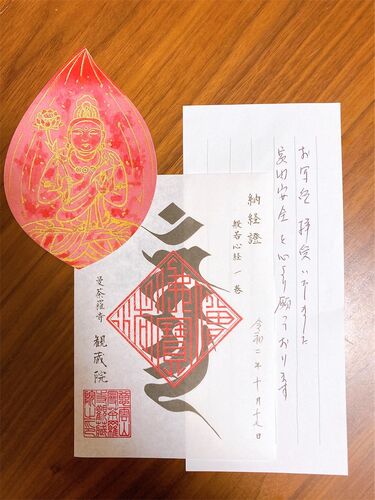 お写経 拝受いたしました
家内安全を心より願っております
納経證
般若心経 一巻
令和二年十月十日
曼荼羅寺 観蔵院